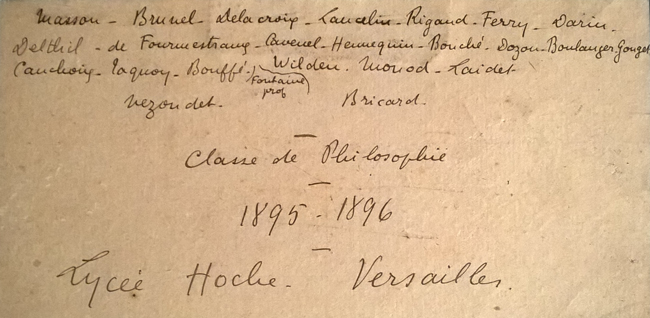 Masson - Brunel - Delacroix - Lancelin - Rigaud - Ferry - Darin -
Delthil - de Fourmestraux - Cavenel - Hennequin - Bouché - Dozon - Boulanger Gouget
Cauchoix - Jaquoy - Bouffé - Wilden - Monod - Laidet
(Fontaine
prof)
Vezondet - Bricard -
Classe de Philosophie
1895 - 1896
Lycée Hoche - Versailles.